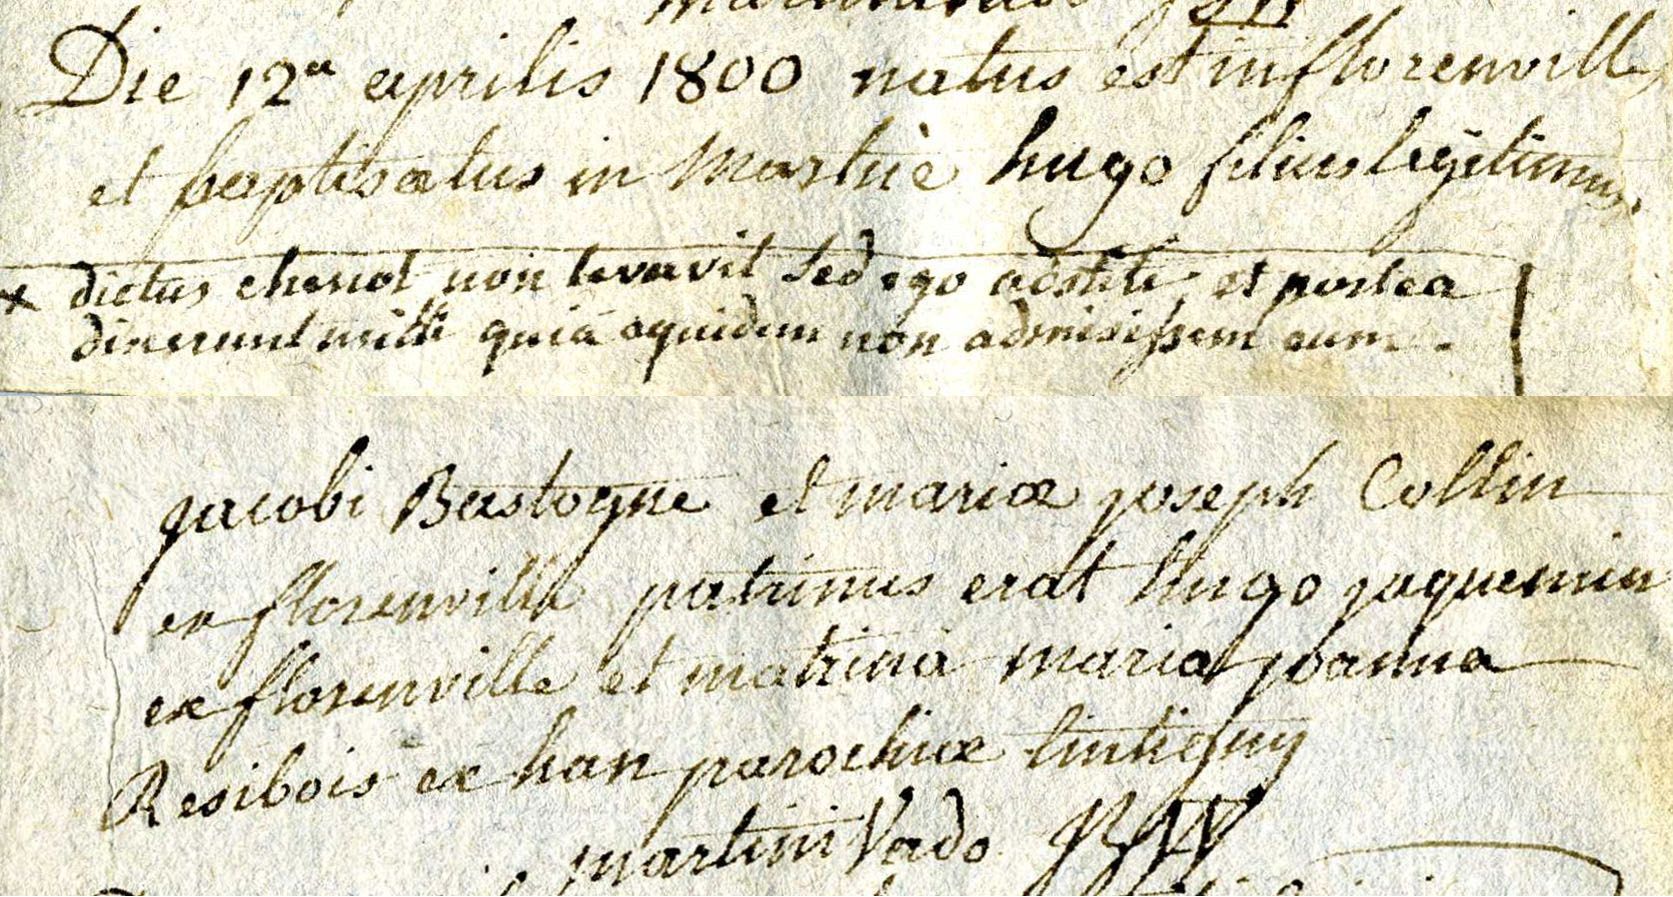 Die 12a aprilis 1800 natus est in florenville
et baptisatus in Martué hugo filius legitimus
x dictus chenot non levavit sed ego adstiti, et postea
dixerunt mihi quia equidem non admisissem eum.
jacobi Bastogne et mariæ joseph Collin
ex florenville patrinus erat hugo jaquemin
ex florenville et matrina maria joanna
Resibois ex han parochiæ tintigny
martini Vado